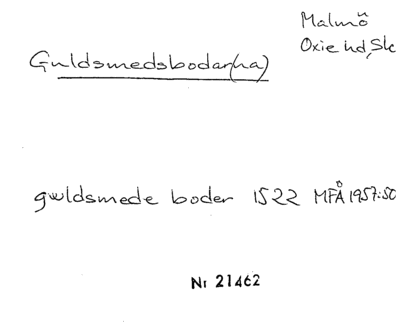 Malmö
Oxie hd, Sk
Guldsmedsbodar(na)
gwldsmede boder 1522 MFÅ 1957:50
Nr 21462